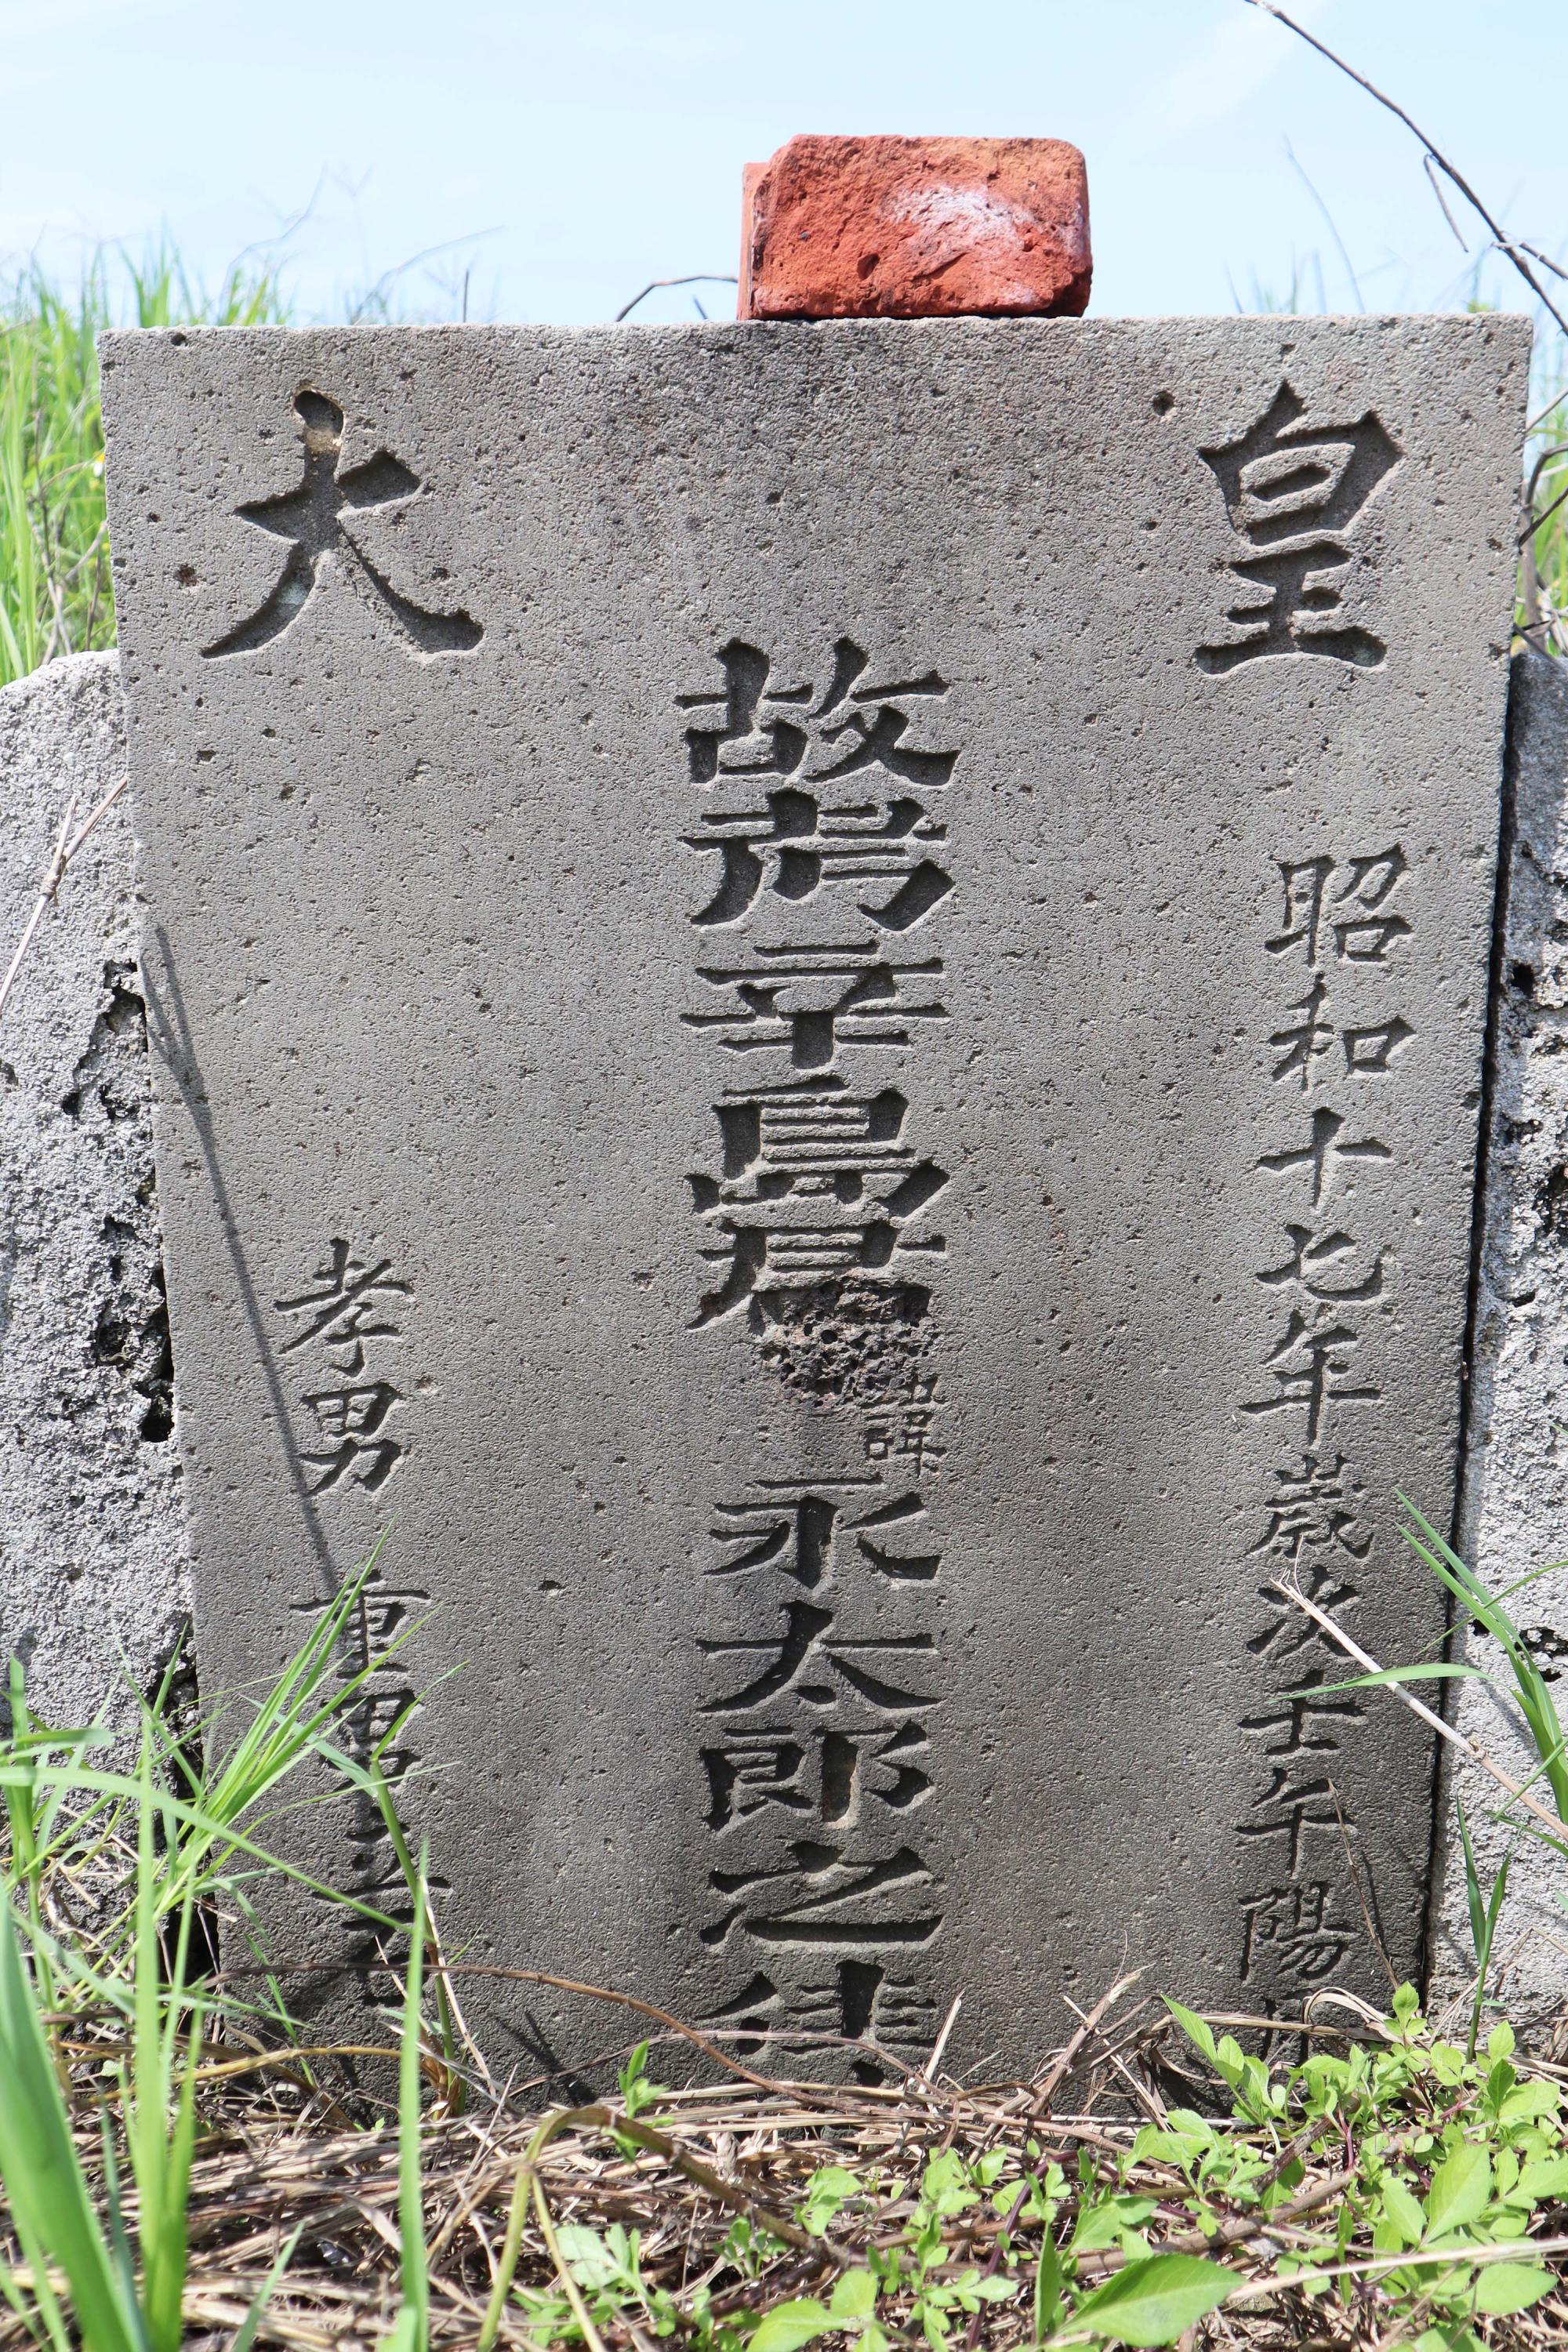 皇大
昭和十七年歲次壬午陽
故考辛島
諱
永太郎之佳
孝男 重男